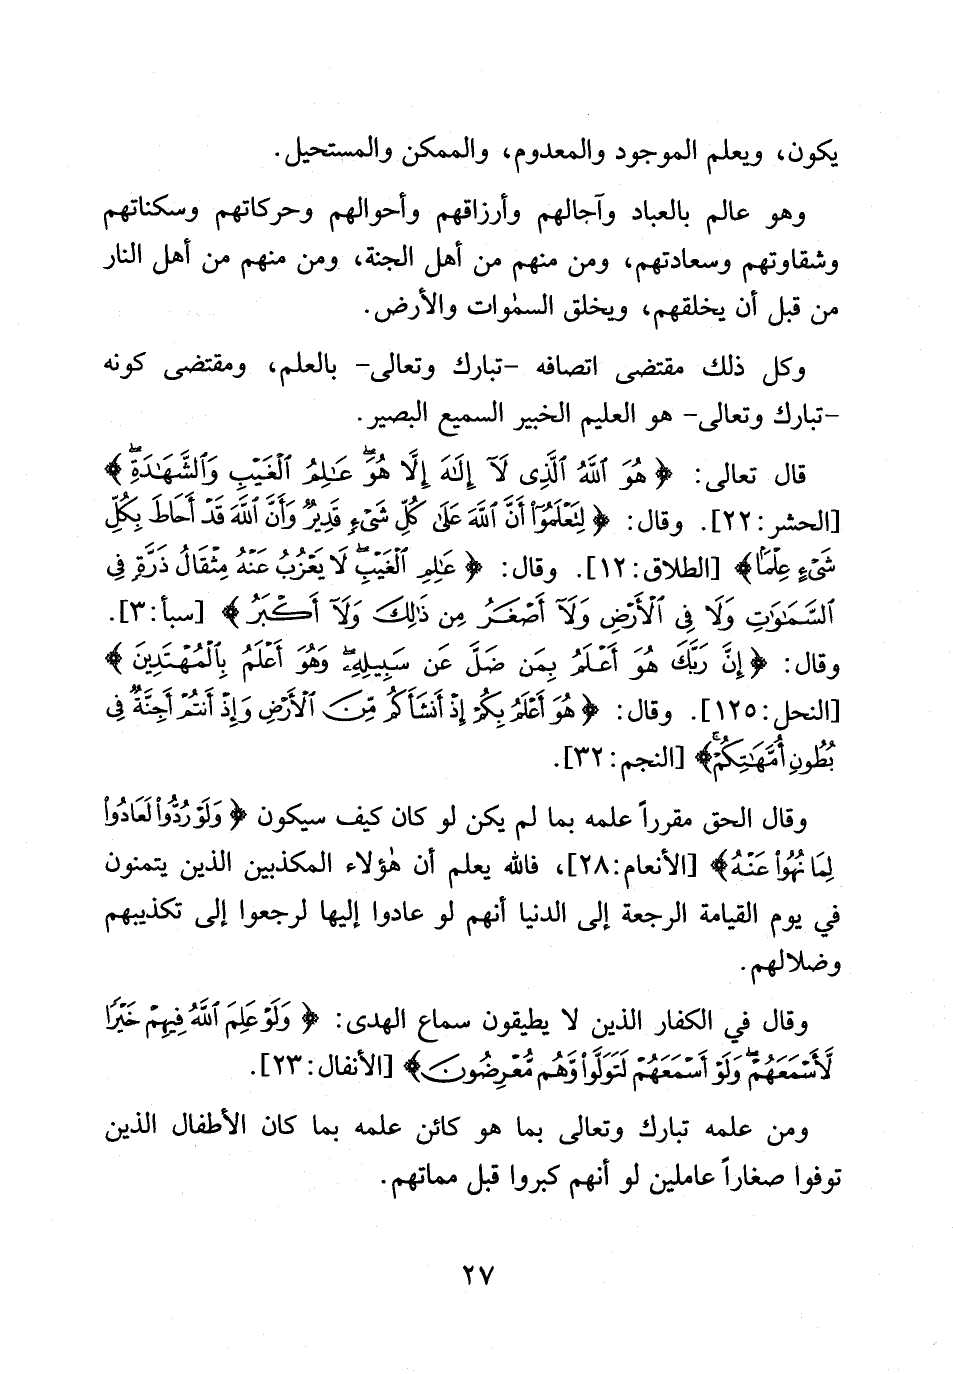 يكون، ويعلم الموجود والمعدوم، والممكن والمستحيل.
وهو عالم بالعباد وآجالهم وأرزاقهم وأحوالهم وحركاتهم وسكناتهم
وشقاوتهم وسعادتهم، ومن منهم من أهل الجنة، ومن منهم من أهل النار
من قبل أن يخلقهم، ويخلق السمٰوات والأرض.
وكل ذلك مقتضى اتصافه -تبارك وتعالى- بالعلم، ومقتضى كونه
-تبارك وتعالى- هو العليم الخبير السميع البصير.
قال تعالى: ﴿هُوَ ٱللَّهُ ٱلَّذِى لَآ إِلَٰهَ إِلَّا هُوَۖ عَٰلِمُ ٱلْغَيْبِ وَٱلشَّهَٰدَةِۖ﴾
[الحشر:٢٢]. وقال: ﴿لِتَعْلَمُوٓا۟ أَنَّ ٱللَّهَ عَلَىٰ كُلِّ شَىْءٍ قَدِيرٌ وَأَنَّ ٱللَّهَ قَدْ أَحَاطَ بِكُلِّ
شَىْءٍ عِلْمًۢا﴾ [الطلاق:١٢]. وقال: ﴿عَٰلِمِ ٱلْغَيْبِۖ لَا يَعْزُبُ عَنْهُ مِثْقَالُ ذَرَّةٍ فِى
ٱلسَّمَٰوَٰتِ وَلَا فِى ٱلْأَرْضِ وَلَآ أَصْغَرُ مِن ذَٰلِكَ وَلَآ أَكْبَرُ﴾ [سبأ:٣].
وقال: ﴿إِنَّ رَبَّكَ هُوَ أَعْلَمُ بِمَن ضَلَّ عَن سَبِيلِهِۦۖ وَهُوَ أَعْلَمُ بِٱلْمُهْتَدِينَ﴾
[النحل:١٢٥]. وقال: ﴿هُوَ أَعْلَمُ بِكُمْ إِذْ أَنشَأَكُم مِّنَ ٱلْأَرْضِ وَإِذْ أَنتُمْ أَجِنَّةٌ فِى
بُطُونِ أُمَّهَٰتِكُمْۚ﴾ [النجم:٣٢].
وقال الحق مقرراً علمه بما لم يكن لو كان كيف سيكون ﴿وَلَوْ رُدُّوا۟ لَعَادُوا۟
لِمَا نُهُوا۟ عَنْهُ﴾ [الأنعام:٢٨]، فالله يعلم أن هٰؤلاء المكذبين الذين يتمنون
في يوم القيامة الرجعة إلى الدنيا أنهم لو عادوا إليها لرجعوا إلى تكذيبهم
وضلالهم.
وقال في الكفار الذين لا يطيقون سماع الهدى: ﴿وَلَوْ عَلِمَ ٱللَّهُ فِيهِمْ خَيْرًا
لَّأَسْمَعَهُمْۖ وَلَوْ أَسْمَعَهُمْ لَتَوَلَّوا۟ وَّهُم مُّعْرِضُونَ﴾ [الأنفال:٢٣].
ومن علمه تبارك وتعالى بما هو كائن علمه بما كان الأطفال الذين
توفوا صغاراً عاملين لو أنهم كبروا قبل مماتهم.
٢٧